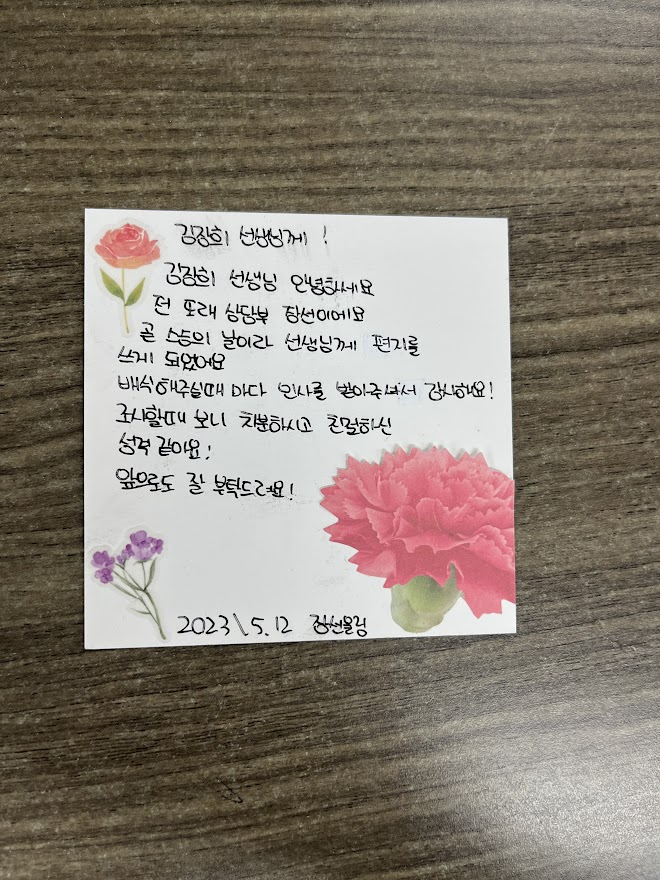 김장희 선생님께 !
김장희 선생님 안녕하세요
전 또래 상담부 장선이에요
곧 스승의 날이라 선생님께 편지를
쓰게 되었어요
배식해주실때 마다 인사를 받아주셔서 감사해요!
조사할때 보니 차분하시고 친절하신
성격 같아요!
앞으로도 잘 부탁드려요!
2023\5.12 장선올림